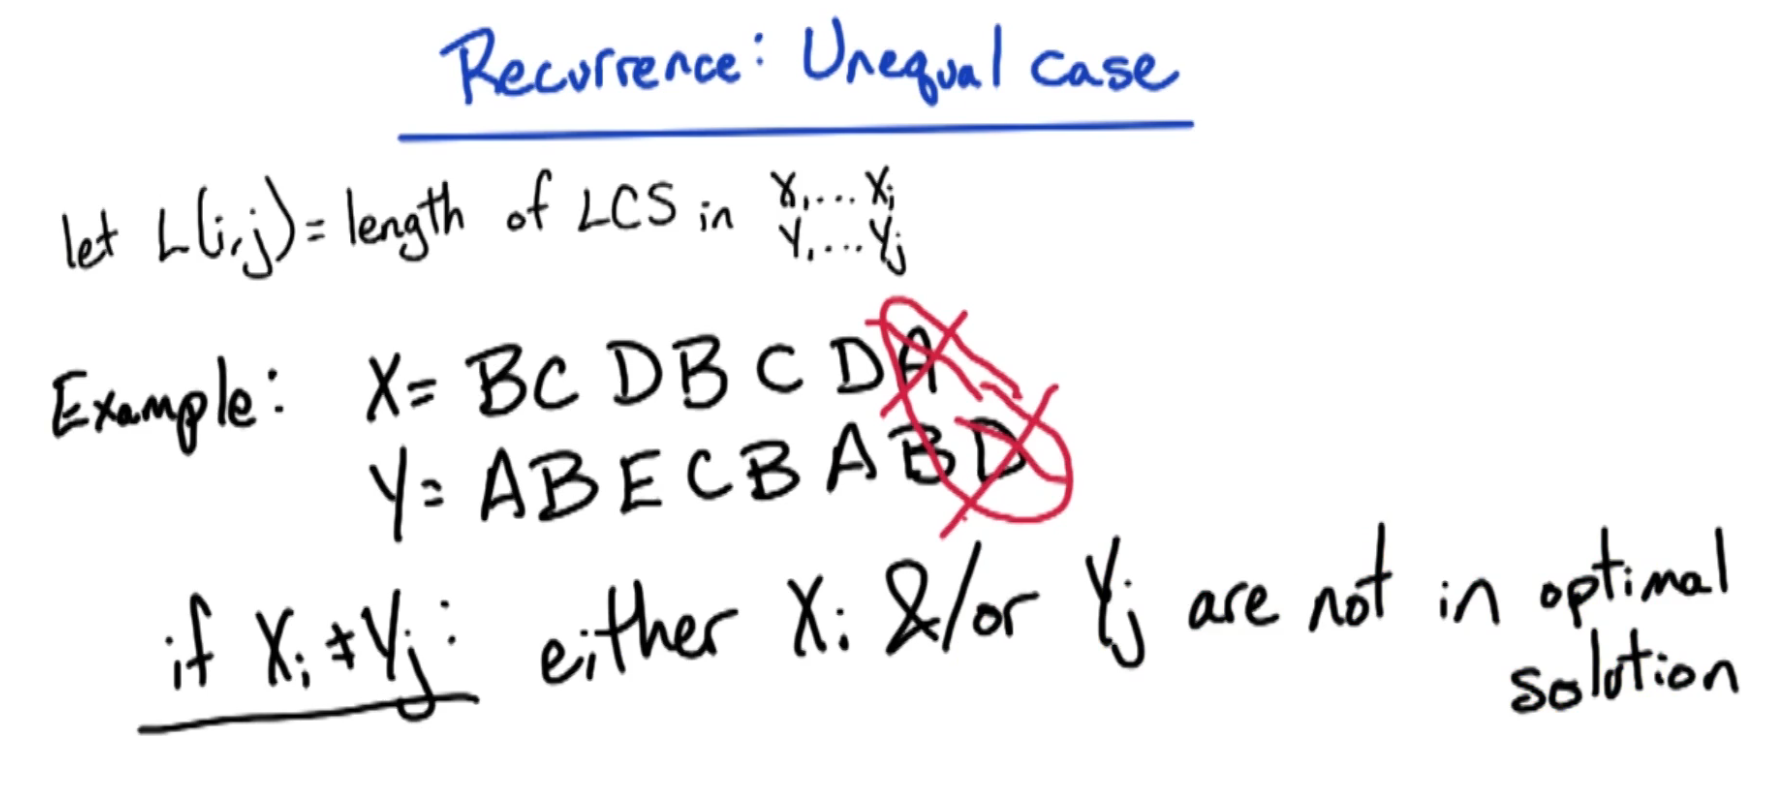 Recurrence: Unequal case
let L(i,j) = length of LCS in X₁...Xᵢ
Y₁...Yⱼ
Example: X= BCDBCDA
Y= ABECBABD
if Xᵢ ≠ Yⱼ: either Xᵢ &/or Yⱼ are not in optimal
solution